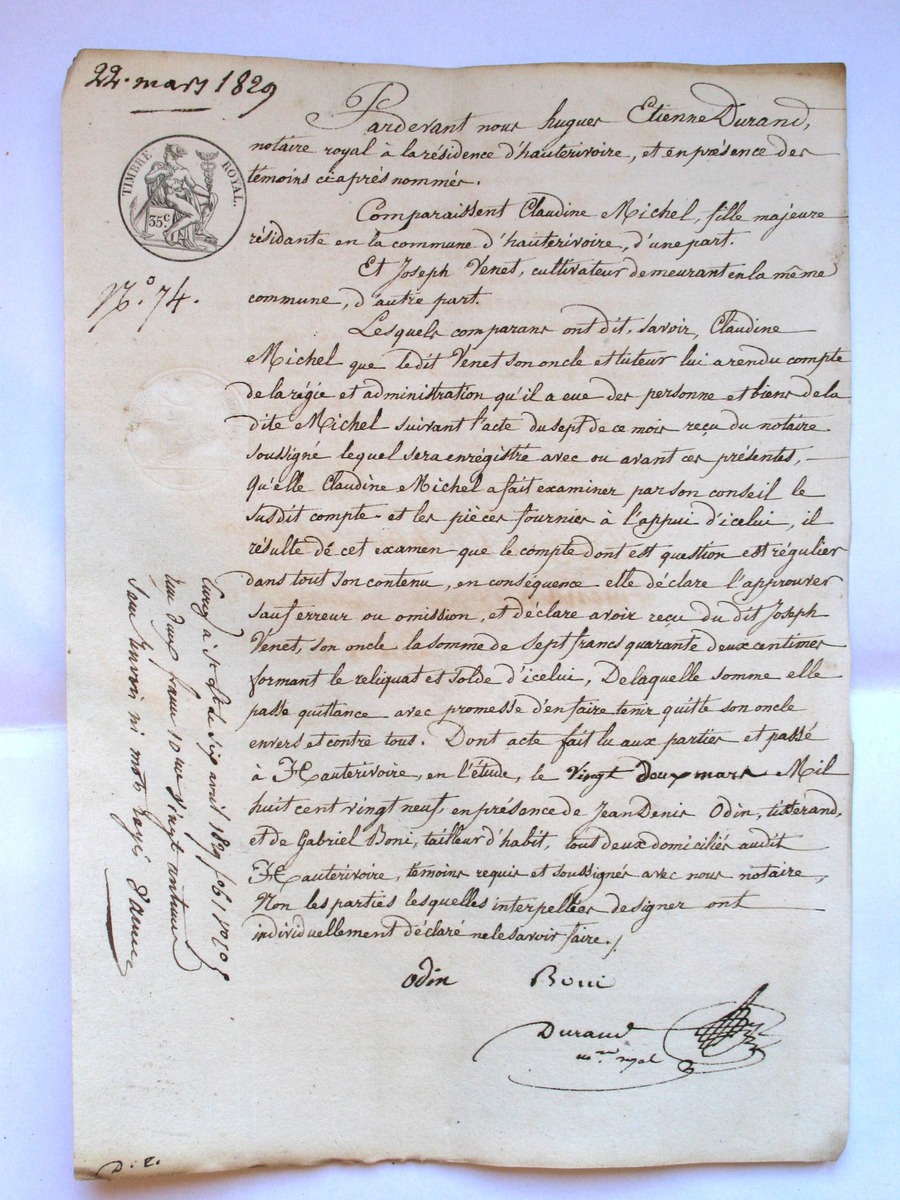 22. mars 1829
TIMBRE ROYAL.
35.c
N.o 74.
Pardevant nous hugues Etienne Durand,
notaire royal à la résidence d'hauterivoire, et en présence des
témoins ci après nommés.
Comparaissent Claudine Michel, fille majeure
résidante en la commune d'hauterivoire, d'une part.
Et Joseph Venet, cultivateur demeurant en la même
commune, d'autre part.
Lesquels comparans ont dit, savoir, Claudine
Michel que le dit Venet son oncle et tuteur lui a rendu compte
de la régie et administration qu'il a eue des personne et biens de la
dite Michel suivant l'acte du sept de ce mois reçu du notaire
soussigné lequel sera enrégistré avec ou avant ces présentes,
Qu'elle Claudine Michel a fait examiner par son conseil le
susdit compte et les pièces fournies à l'appui d'icelui, il
résulte de cet examen que le compte dont est question est régulier
dans tout son contenu, en conséquence elle déclare l'approuver
sauf erreur ou omission, et déclare avoir reçu du dit Joseph
Venet, son oncle la somme de sept francs quarante deux centimes
formant le reliquat et solde d'icelui, De laquelle somme elle
passe quittance avec promesse d'en faire tenir quitte son oncle
envers et contre tous. Dont acte fait lu aux parties et passé
à Hauterivoire, en l'étude, le vingt deux mars Mil
huit cent vingt neuf, en présence de Jean Denis Odin, tisserand,
et de Gabriel Boni, tailleur d'habit, tous deux domiciliés audit
Hauterivoire, témoins requis et soussignés avec nous notaire,
Non les parties lesquelles interpellées de signer ont
individuellement déclaré ne le savoir faire./
Odin Boni
Durand
no.re royal
Enreg. à St six avril 1829 fo
deux francs 10.me vingt centimes
sans renvoi ni mots rayés
D. E.